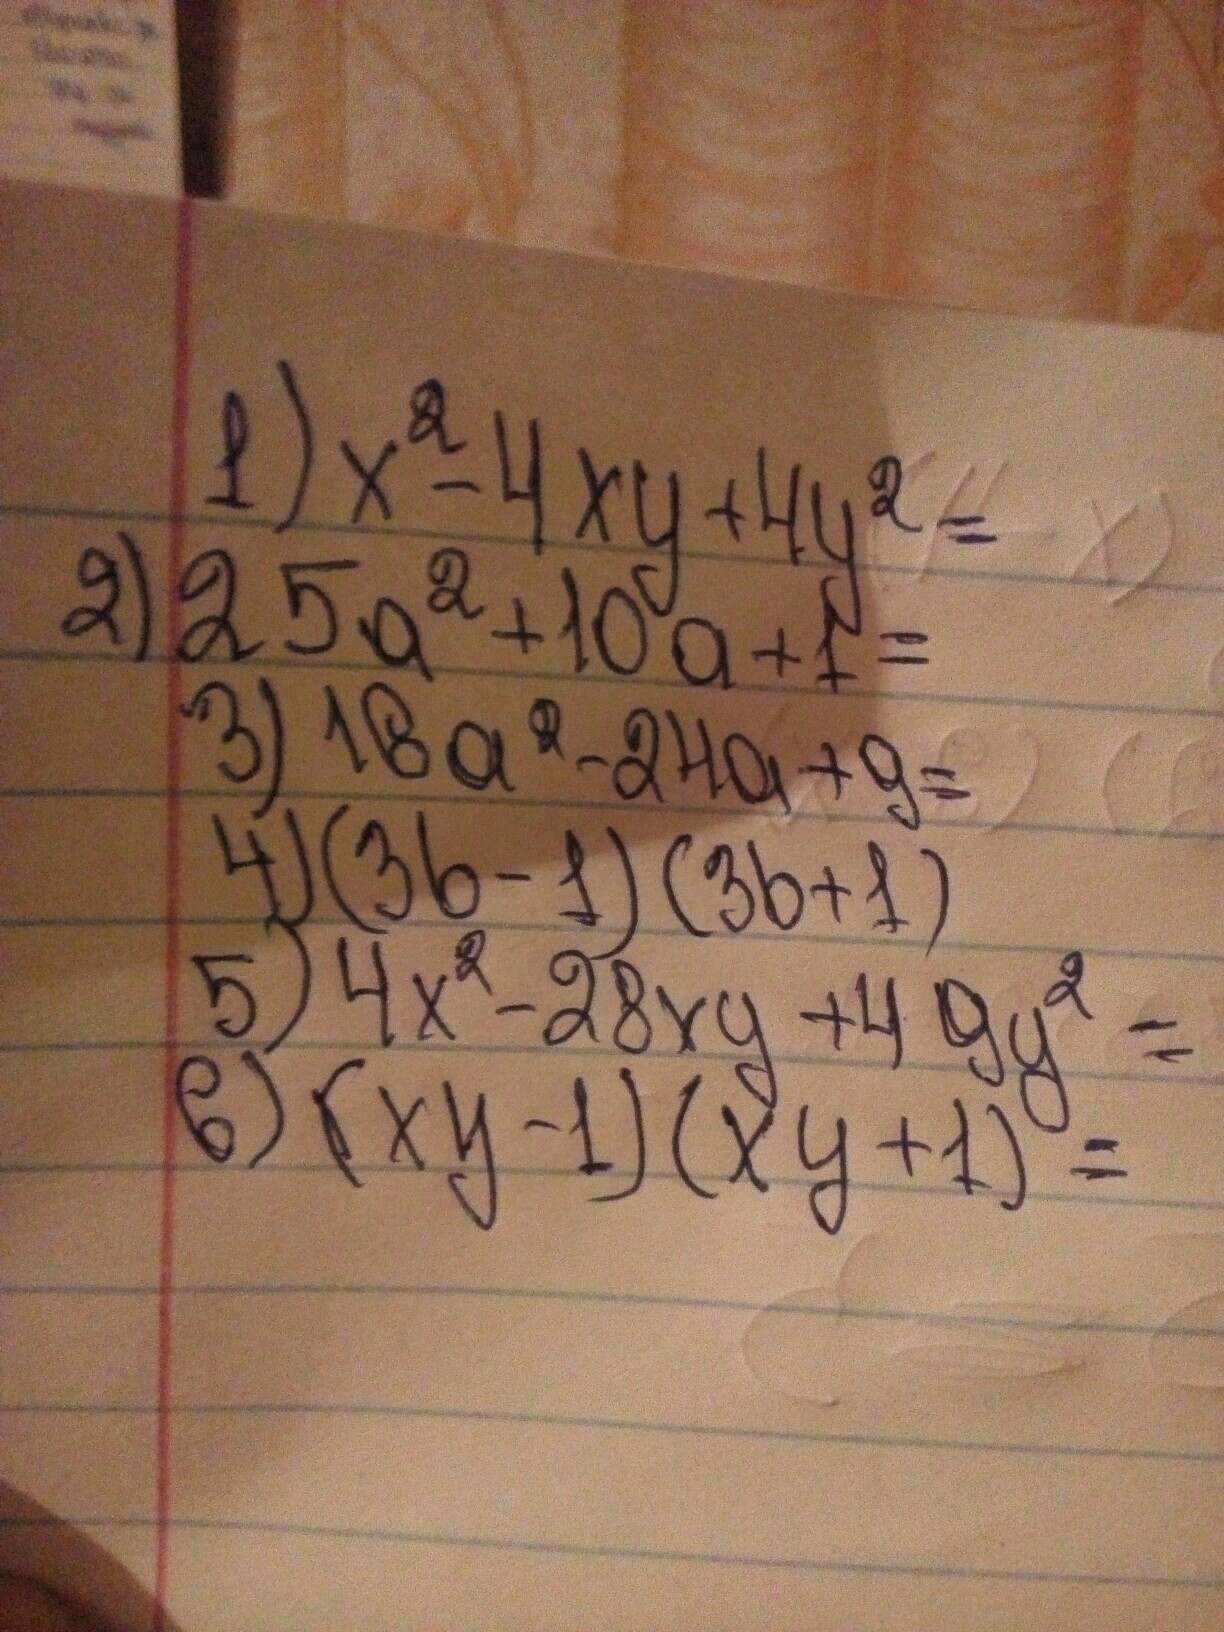 1) x² - 4xy + 4y² =
2) 25a² + 10a + 1 =
3) 16a² - 24a + 9 =
4) (3b - 1) (3b + 1)
5) 4x² - 28xy + 49y² =
6) (xy - 1) (xy + 1) =